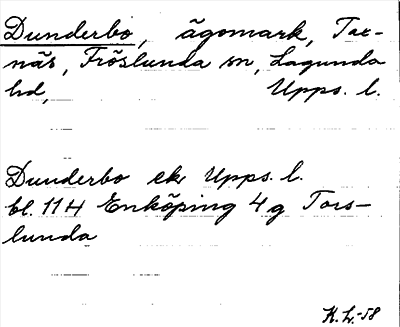 Dunderbo, ägomark, Tax-
näs, Fröslunda sn, Lagunda
hd, Upps. l.
Dunderbo ek Upps. l.
bl. 11H Enköping 4g Tors-
lunda
K.L.-58